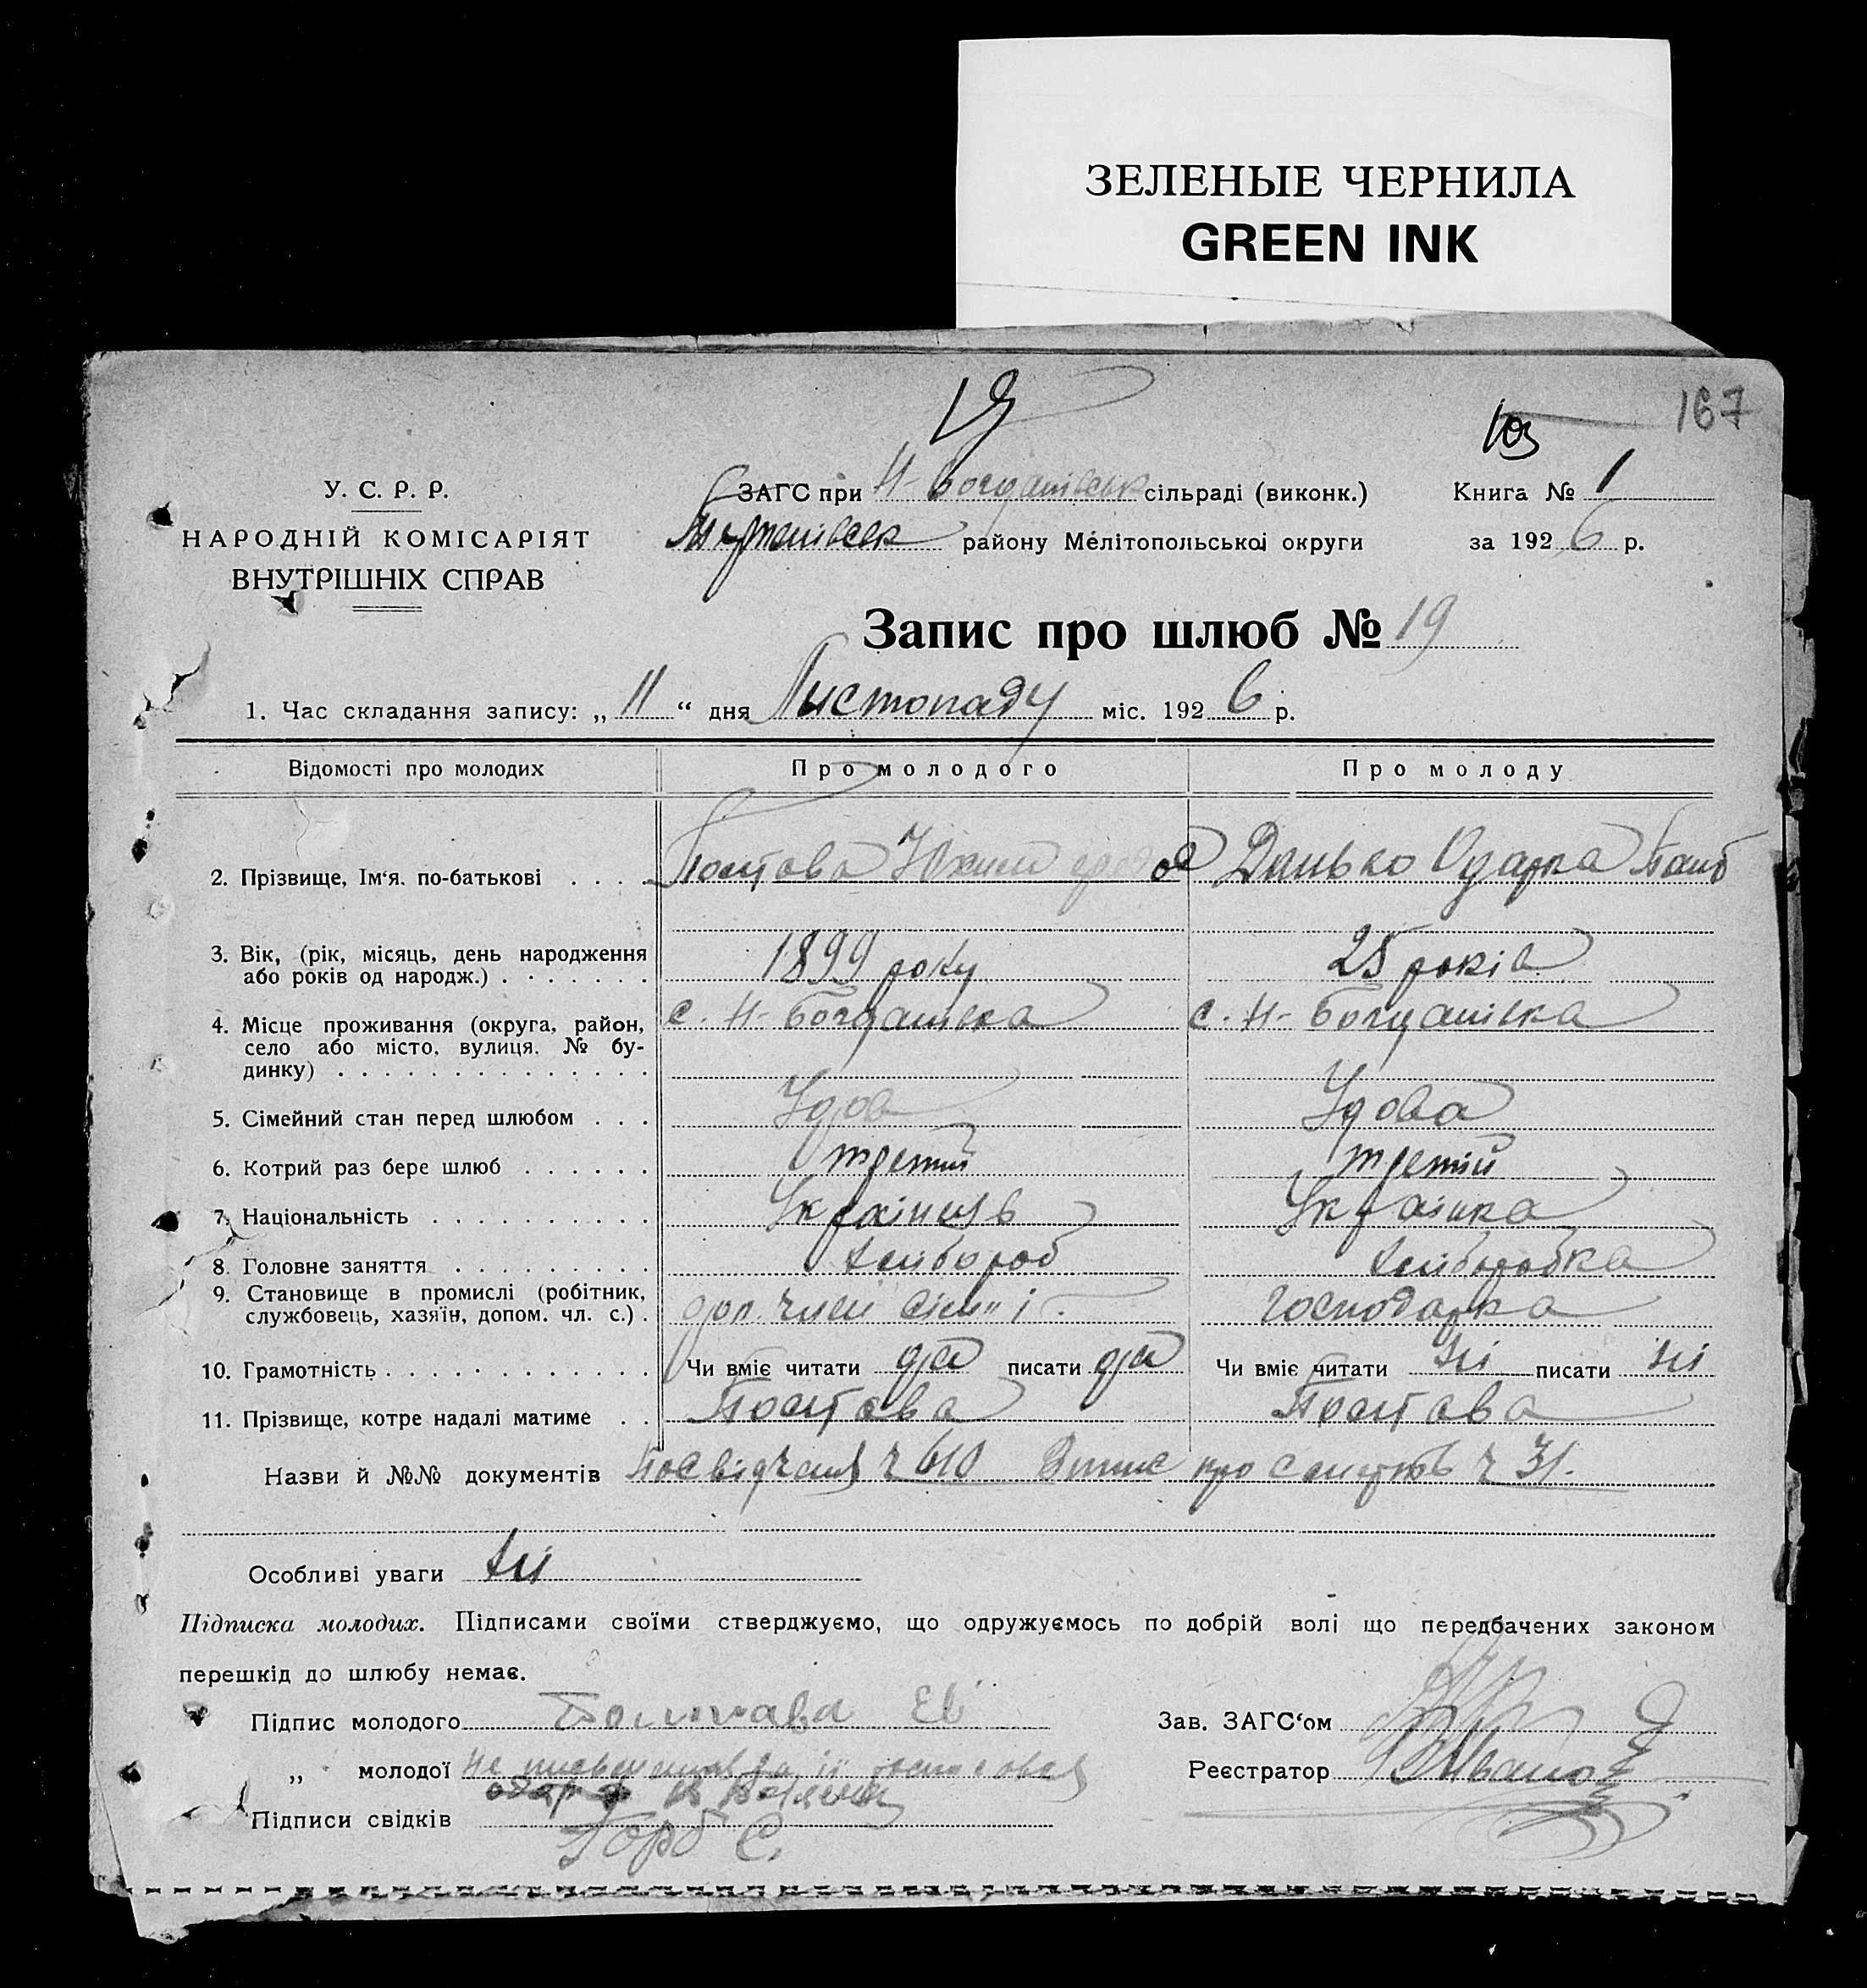 ЗЕЛЕНЫЕ ЧЕРНИЛА
GREEN INK
19
103
167
У. С. Р. Р.
НАРОДНІЙ КОМІСАРІЯТ
ВНУТРІШНІХ СПРАВ
ЗАГС при Н-Богданівськ сільраді (виконк.)
району Мелітопольської округи
Книга № 1
за 1926 р.
Запис про шлюб № 19
1. Час складання запису: „11“ дня Листопаду міс. 1926 р.
Відомості про молодих Про молодого Про молоду
2. Прізвище, Ім‘я. по-батькові . . . . Полтава Юхим Данько Одарка
3. Вік, (рік, місяць, день народження 1899 року 25 років
або років од народж.) . . . . . . .
4. Місце проживання (округа, район, с. Н-Богданівка с. Н-Богданівка
село або місто, вулиця. № бу-
динку) . . . . . . . . . . . . . .
5. Сімейний стан перед шлюбом . . . Удов Удова
6. Котрий раз бере шлюб . . . . . . третий третій
7. Національність . . . . . . . . . . Українець Українка
8. Головне заняття . . . . . . . . . хлібороб хлібороbка
9. Становище в промислі (робітник, доп. член сім'ї. господарка
службовець, хазяїн, допом. чл. с.) .
10. Грамотність . . . . . . . . . . . . Чи вміє читати да писати да Чи вміє читати ні писати ні
11. Прізвище, котре надалі матиме . . Полтава Полтава
Назви й №№ документів Посвідченя ч 610 Витис про смерть ч 31.
Особливі уваги ні
Підписка молодих. Підписами своїми стверджуємо, що одружуємось по добрій волі що передбачених законом
перешкід до шлюбу немає.
Підпис молодого Полтава Ев
Зав. ЗАГС‘ом
„ молодої
Реєстратор
Підписи свідків
Горб С.